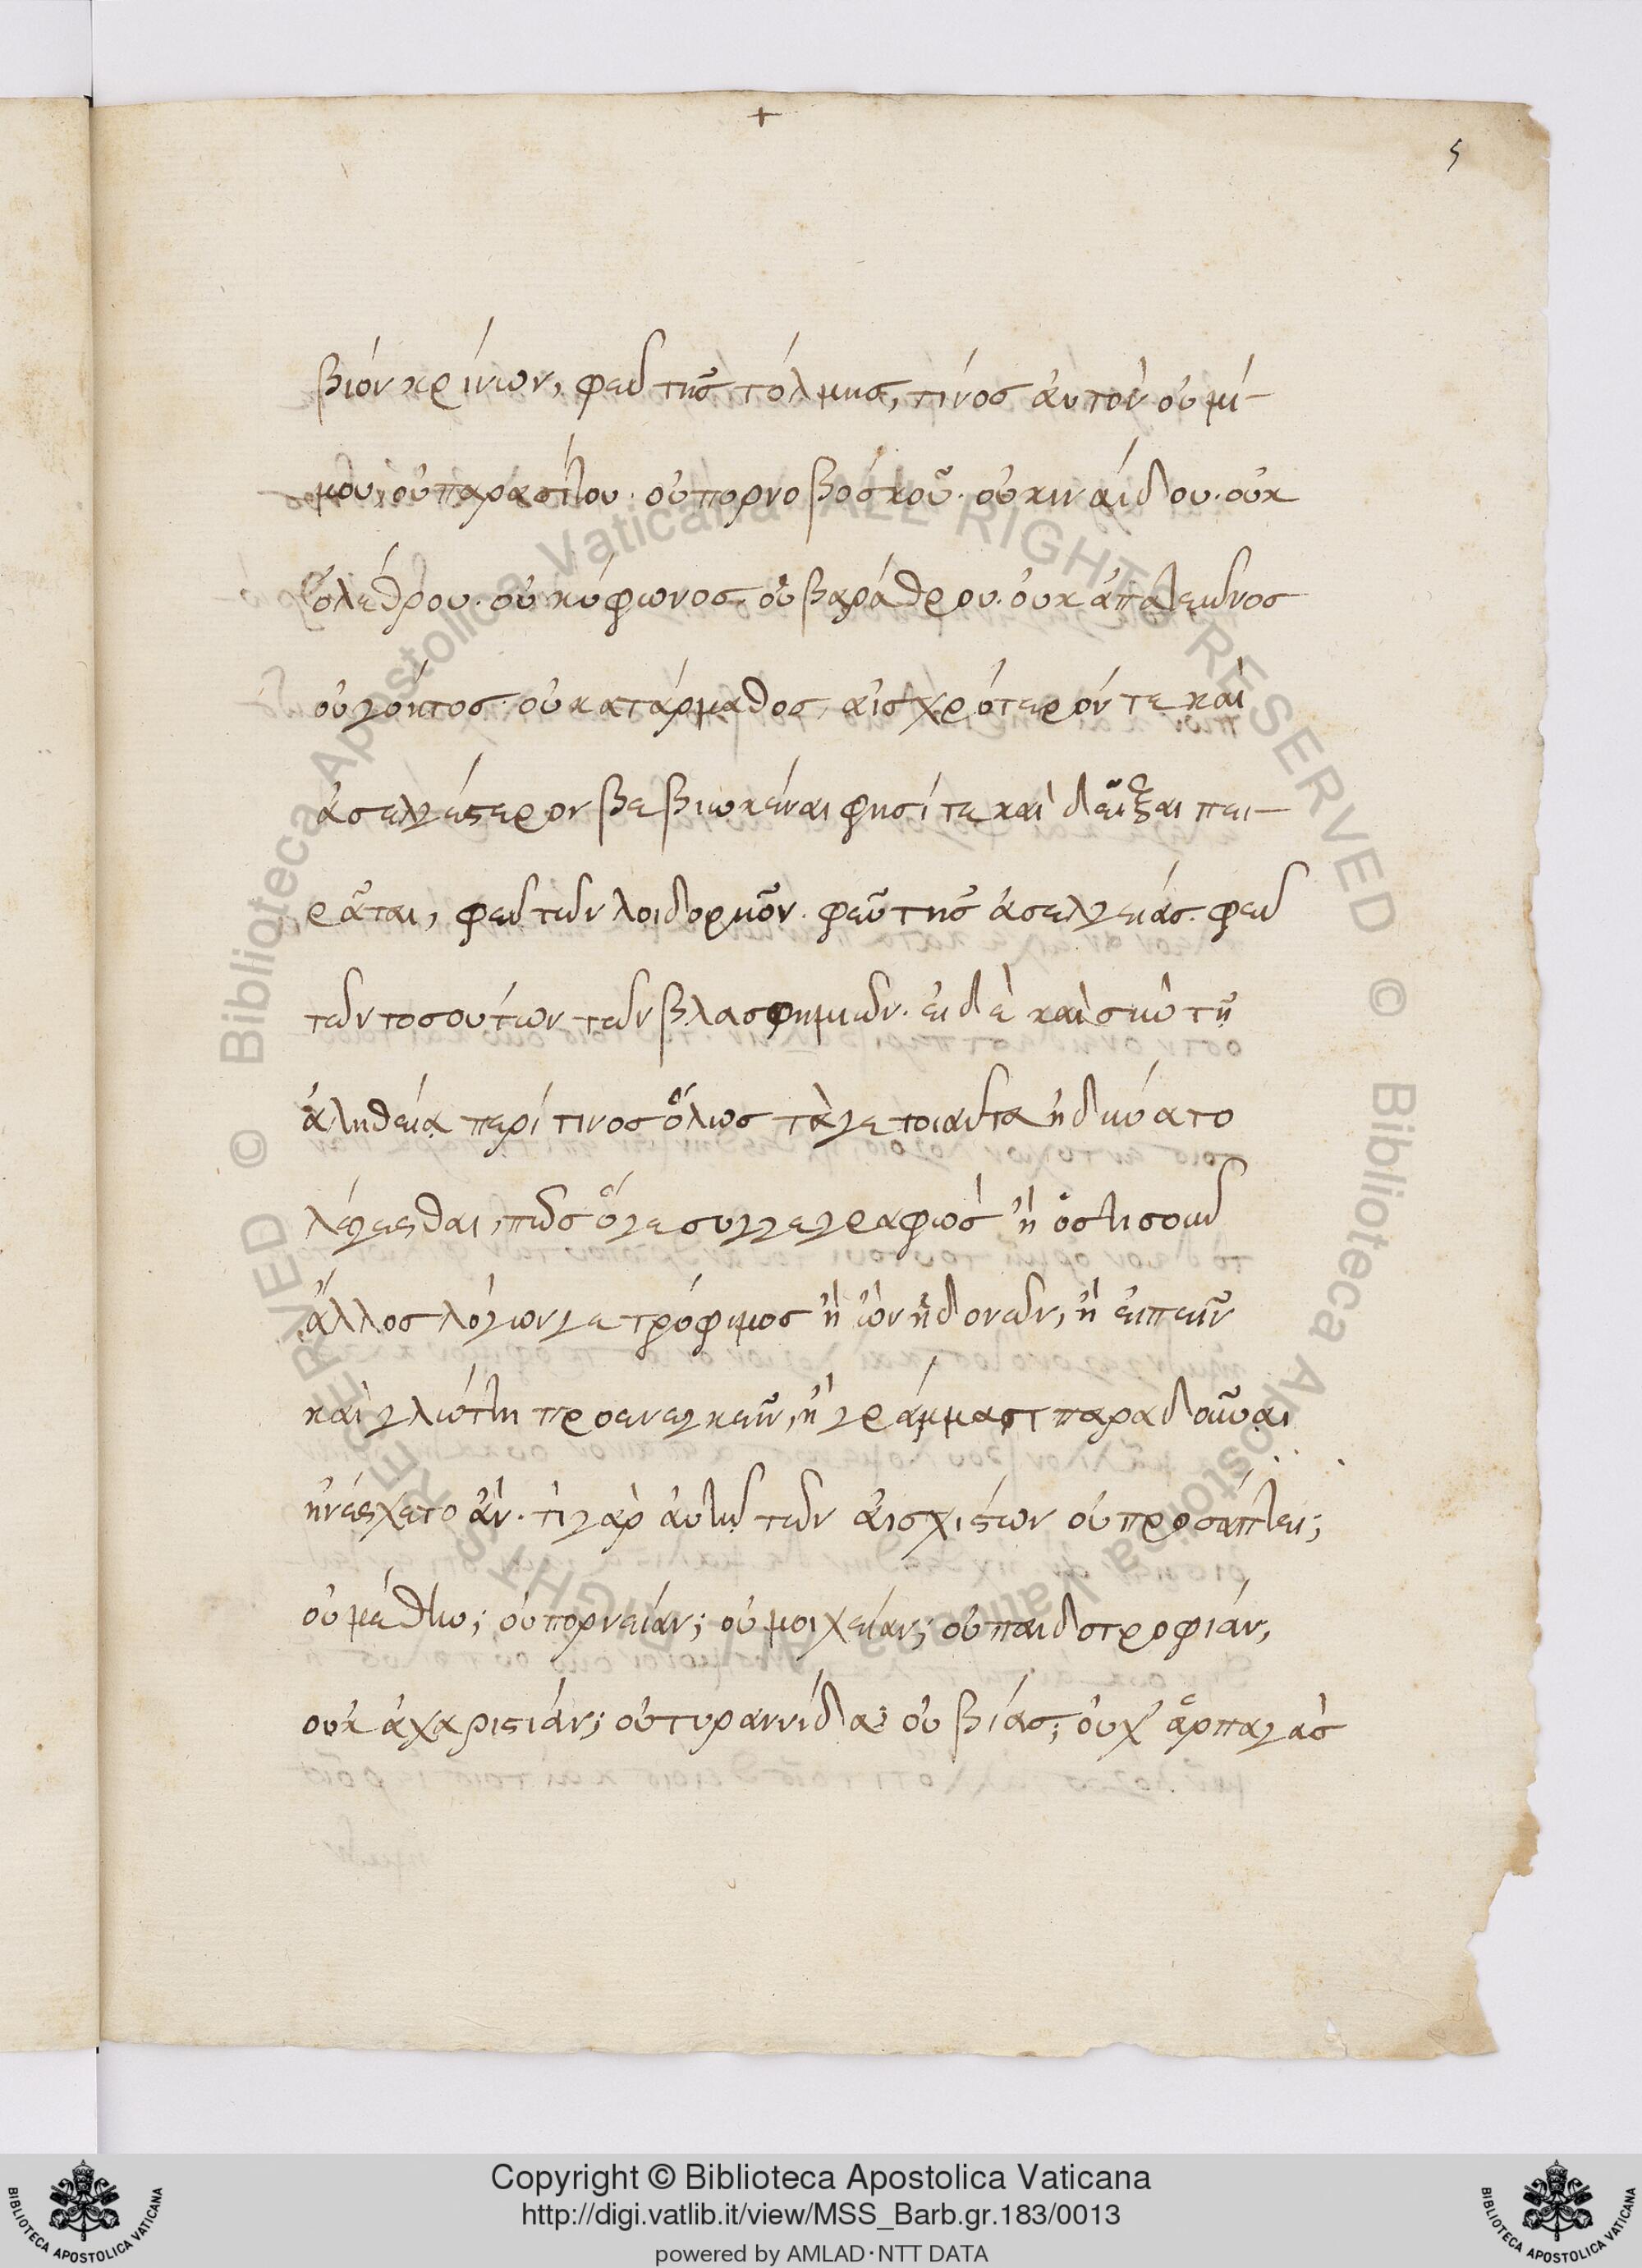 +
5
βιόν κρίνων, φεῦ τῆς τόλμης, τίνος ἀυτὸν οὐ μί-
μου, οὐ παρασίτου· οὐ πορνοβόσκοῦ· οὐ κιναίδου· οὐκ
ὀλέθρου· οὐ κύφωνος· οὐ βαράθρου· ὀυκ ἀπατεῶνος
οὐ γόητος· οὐ καταρμαθος, ἀισχρότερόν τε καὶ
ἀσελγέστερον βεβιωκέναι φησί τε καὶ δεῖξαι πει-
ρᾶται, φεῦ τῶν λοιδοριῶν· φεῦ τῆς ἀσελγειάς· φεῦ
τῶν τοσούτων τῶν βλασφημιῶν· ἐι δὲ καὶ σὺν τῇ
ἀληθείᾳ περί τινος ὅλως τὰ γε τοιαῦτα ἠδύνατο
λέγεσθαι, πῶς ὅγε συγγεγραφὼς ἢ ὁστισοῦν
ἄλλος λόγων γε τρόφιμος ἢ ὢν ἡδονῶν, ἢ ἐιπεῖν
καὶ γλώττῃ προενεγκεῖν, ἢ γράμμασι παραδοῦναι
ἠνέσχετο ἂν· τὶ γὰρ ἀυτῷ τῶν ἀισχίστων οὐ προσάπτει;
οὐ μέθην; οὐ πορνείαν; οὐ μοιχείαν; οὐ παιδοτροφιάν,
οὐκ ἀχαριστιάν; οὐ τυραννίδα; οὐ βίας; ὀυχ' ἁρπαγὰς
Copyright © Biblioteca Apostolica Vaticana
http://digi.vatlib.it/view/MSS_Barb.gr.183/0013
powered by AMLAD·NTT DATA
BIBLIOTECA APOSTOLICA VATICANA
BIBLIOTECA APOSTOLICA VATICANA
© Biblioteca Apostolica Vaticana ALL RIGHTS RESERVED
© Biblioteca Apostolica Vaticana ALL RIGHTS RESERVED